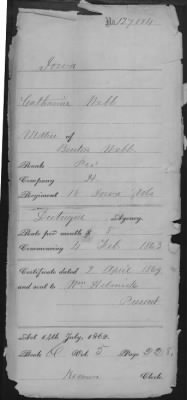 No 127,084
Iowa
Catharine Webb
Mother of
Benton Webb
Rank Pri
Company H
Regiment 18 Iowa Vols
Dubuque Agency.
Rate per month $ 8
Commencing 4 Feb 1863
Certificate dated 2 April 1869
and sent to Wm Helmick
Present
Act 14th July, 1862.
Book C Vol. 5 Page 228
Clerk.